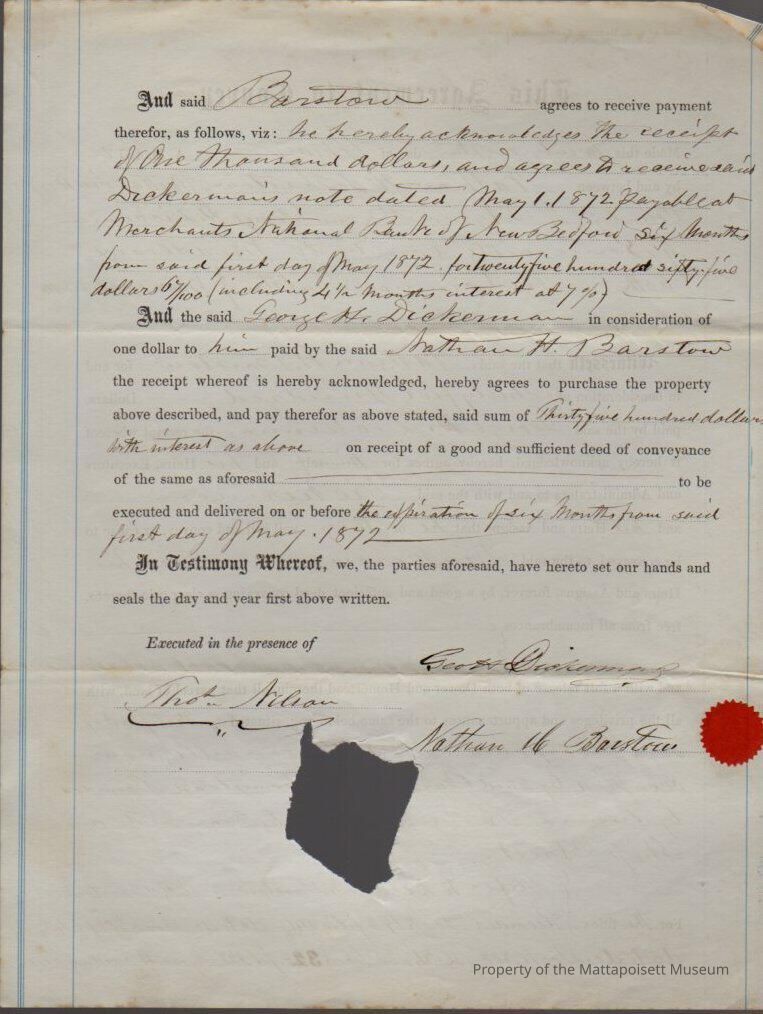 And said Barstow agrees to receive payment
therefor, as follows, viz: he hereby acknowledges the receipt
of One thousand dollars, and agrees to receive said
Dickerman's note dated May 1. 1872 payable at
Merchants National Bank of New Bedford six Months
from said first day of May 1872 for twentyfive hundred sixty-five
dollars 6/100 (including 4½ Months interest at 7%)
And the said George H. Dickerman in consideration of
one dollar to him paid by the said Nathan H. Barstow
the receipt whereof is hereby acknowledged, hereby agrees to purchase the property
above described, and pay therefor as above stated, said sum of Thirtyfive hundred dollars
with interest as above on receipt of a good and sufficient deed of conveyance
of the same as aforesaid to be
executed and delivered on or before the expiration of six Months from said
first day of May. 1872
In Testimony Whereof, we, the parties aforesaid, have hereto set our hands and
seals the day and year first above written.
Executed in the presence of
Geo H Dickerman
Thos Nelson
Nathan H Barstow
Property of the Mattapoisett Museum